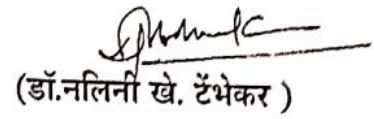 (डॉ.नलिनी खे. टेंभेकर )